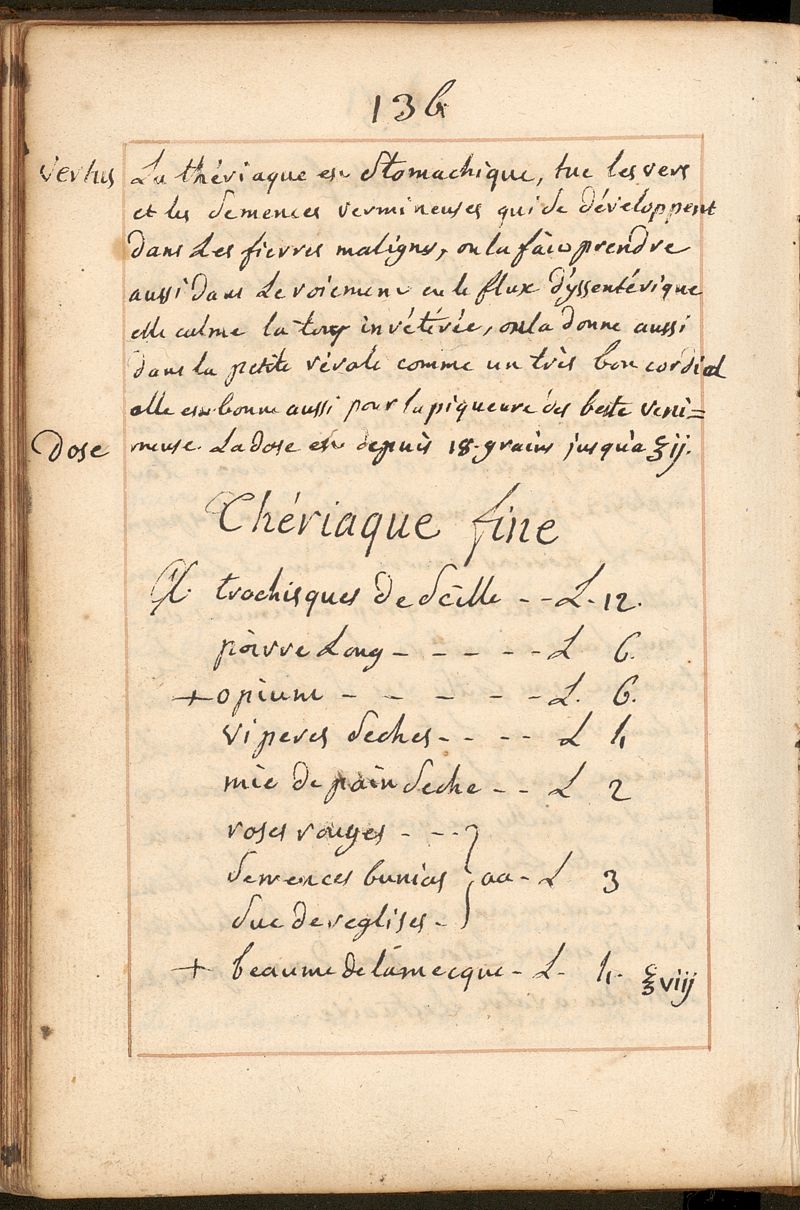 136
Vertus La thériaque est Stomachique, tue les vers
et les Semences vermineuses qui se développent
dans Les fievres malignes, on la fait prendre
aussi dans Le voiement et le flux dyssentérique
elle calme la toux invétérée, on la donne aussi
dans la petite vérole comme un très bon cordial
elle est bonne aussi pour la piqueure des beste veni=
Dose meuse. La dose est depuis 18. grains jusqu'a ʒij.
Thériaque fine
♃. trochisques de Scille - - L. 12.
poivre Long - - - - - L 6.
+ opium - - - - - L. 6.
viperes seches - - - - L 4
mie de pain seche - - L 2
roses rouges - - -
Semences bunias } aa - L 3
Suc de reglises -
+ beaume de lamecque - L - 4. ℥viij